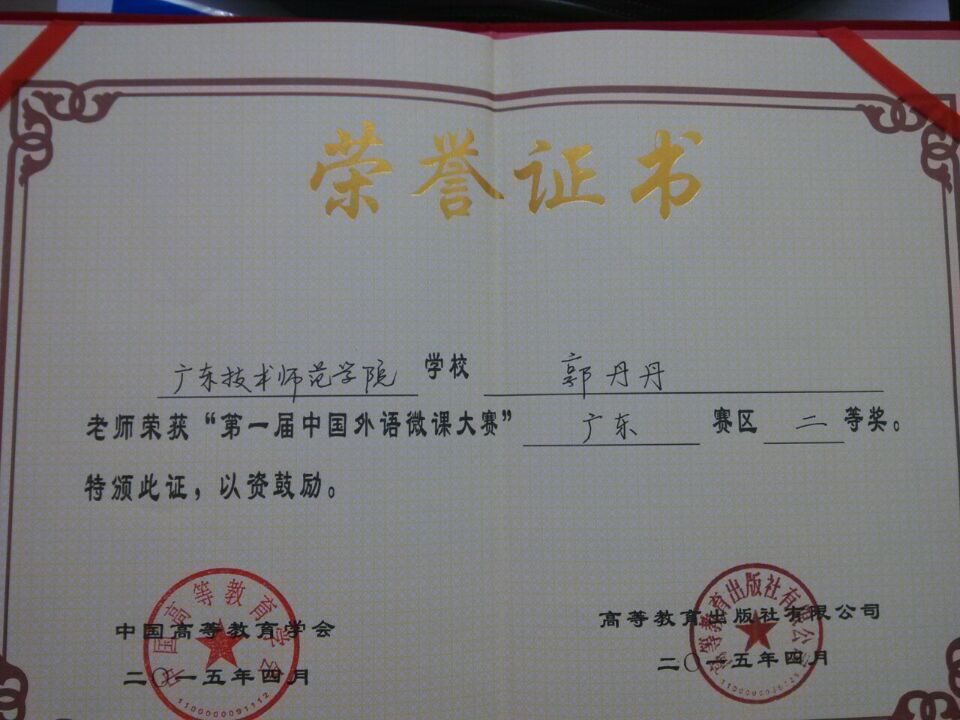 荣誉证书
广东技术师范学院 学校 郭丹丹
老师荣获“第一届中国外语微课大赛” 广东 赛区 二 等奖。
特颁此证，以资鼓励。
中国高等教育学会
二〇一五年四月
中国高等教育学会
1100000091112
高等教育出版社有限公司
二〇一五年四月
高等教育出版社有限公司